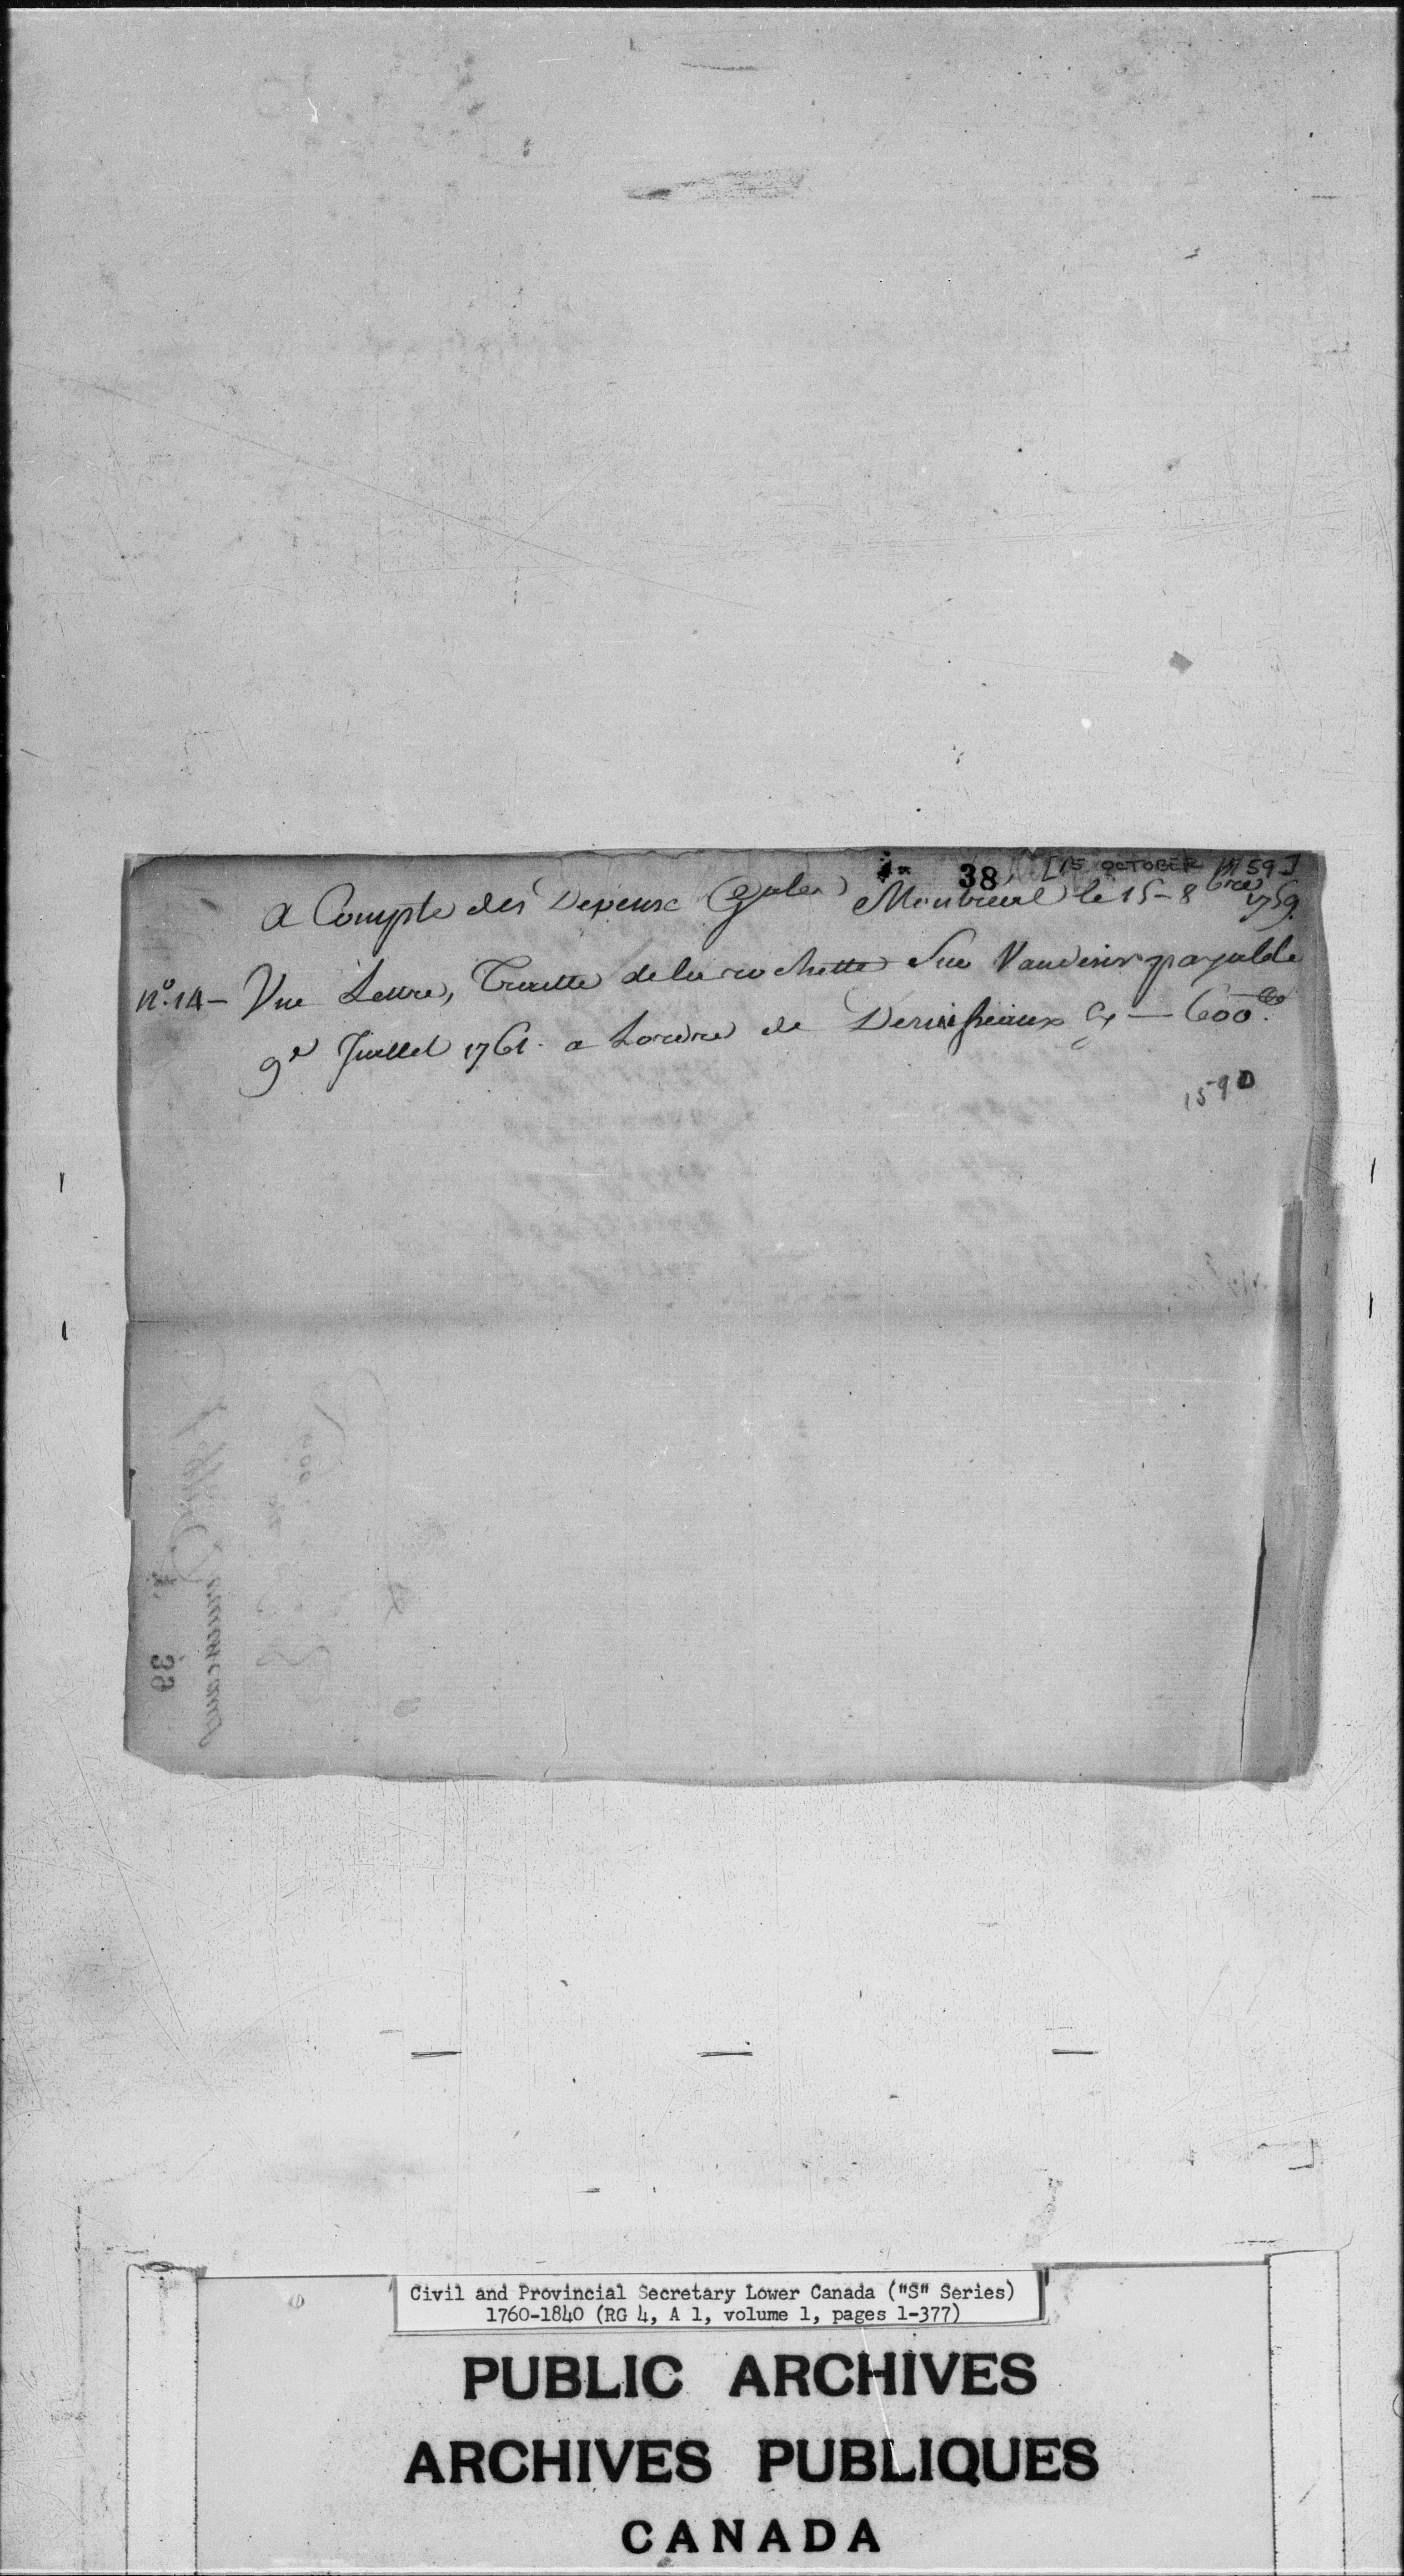 38 [15 OCTOBER 1759]
a Compte des Depense Gales Montreal le 15 - 8bre 1759.
no. 14 - Vne Lettre, Traitte de la rochette Sur Vaudesir payable
9e Juillet 1761. a Lordre de Deruisseaux Cy — 600lt.
1590
39
Civil and Provincial Secretary Lower Canada ("S" Series)
1760-1840 (RG 4, A 1, volume 1, pages 1-377)
PUBLIC ARCHIVES
ARCHIVES PUBLIQUES
CANADA